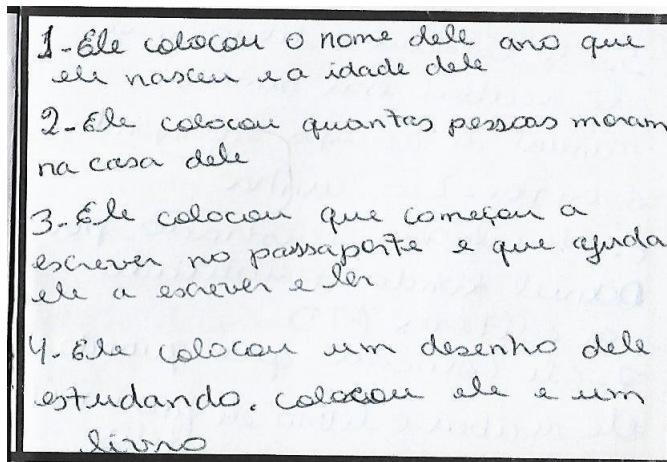 1-Ele colocou o nome dele ano que
ele nasceu e a idade dele
2-Ele colocou quantas pessoas moram
na casa dele
3-Ele colocou que começou a
escrever no passaporte e que ajuda
ele a escrever e ler
4-Ele colocou um desenho dele
estudando. colocou ele e um
livro